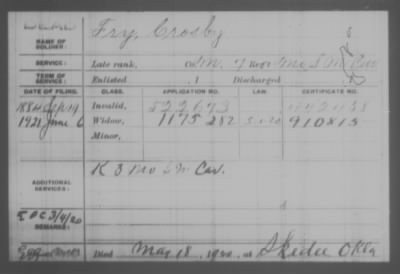 Fry, Crosby
NAME OF SOLDIER:
SERVICE: Late rank, Co. M, 7 Reg't Mo S M Cav
TERM OF SERVICE: Enlisted , 1 Discharged
DATE OF FILING. CLASS. APPLICATION NO. LAW. CERTIFICATE NO.
1884 Invalid, 522673
1921 June 6 Widow, 1175282 910815
Minor,
ADDITIONAL SERVICES: K 3 Mo S M Cav.
REMARKS:
Died Mar 18, 1920, at Skedee Okla